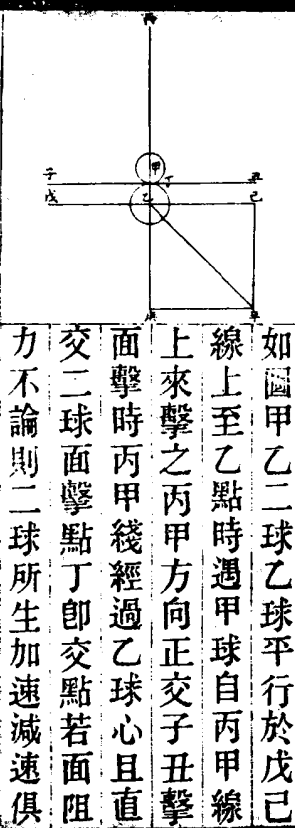 丙
甲
子 丁 丑
戊 乙 己
庚 辛
如圖甲乙二球乙球平行於戊己
線上至乙點時遇甲球自丙甲線
上來擊之丙甲方向正交子丑擊
面擊時丙甲綫經過乙球心且直
交二球面擊點丁卽交點若面阻
力不論則二球所生加速減速俱